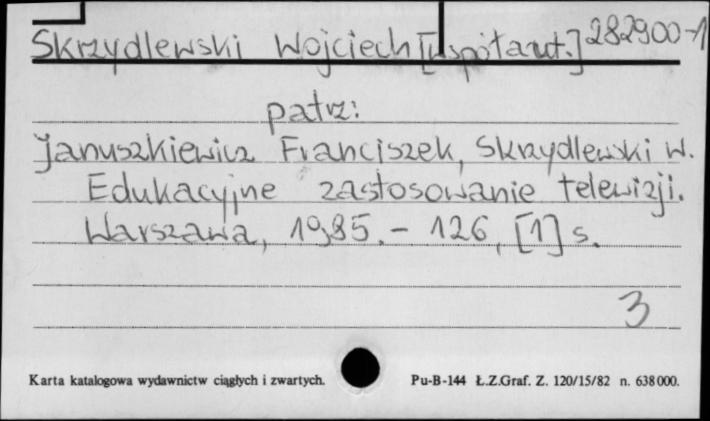 Skrzydlewski Wojciech [współaut.] 282900-1
patrz:
Januszkiewicz Franciszek, Skrzydlewski W.
Edukacyjne zastosowanie telewizji.
Warszawa, 1985. - 126, [1] s.
3
Karta katalogowa wydawnictw ciągłych i zwartych. Pu-B-144 Ł.Z.Graf. Z. 120/15/82 n. 638000.